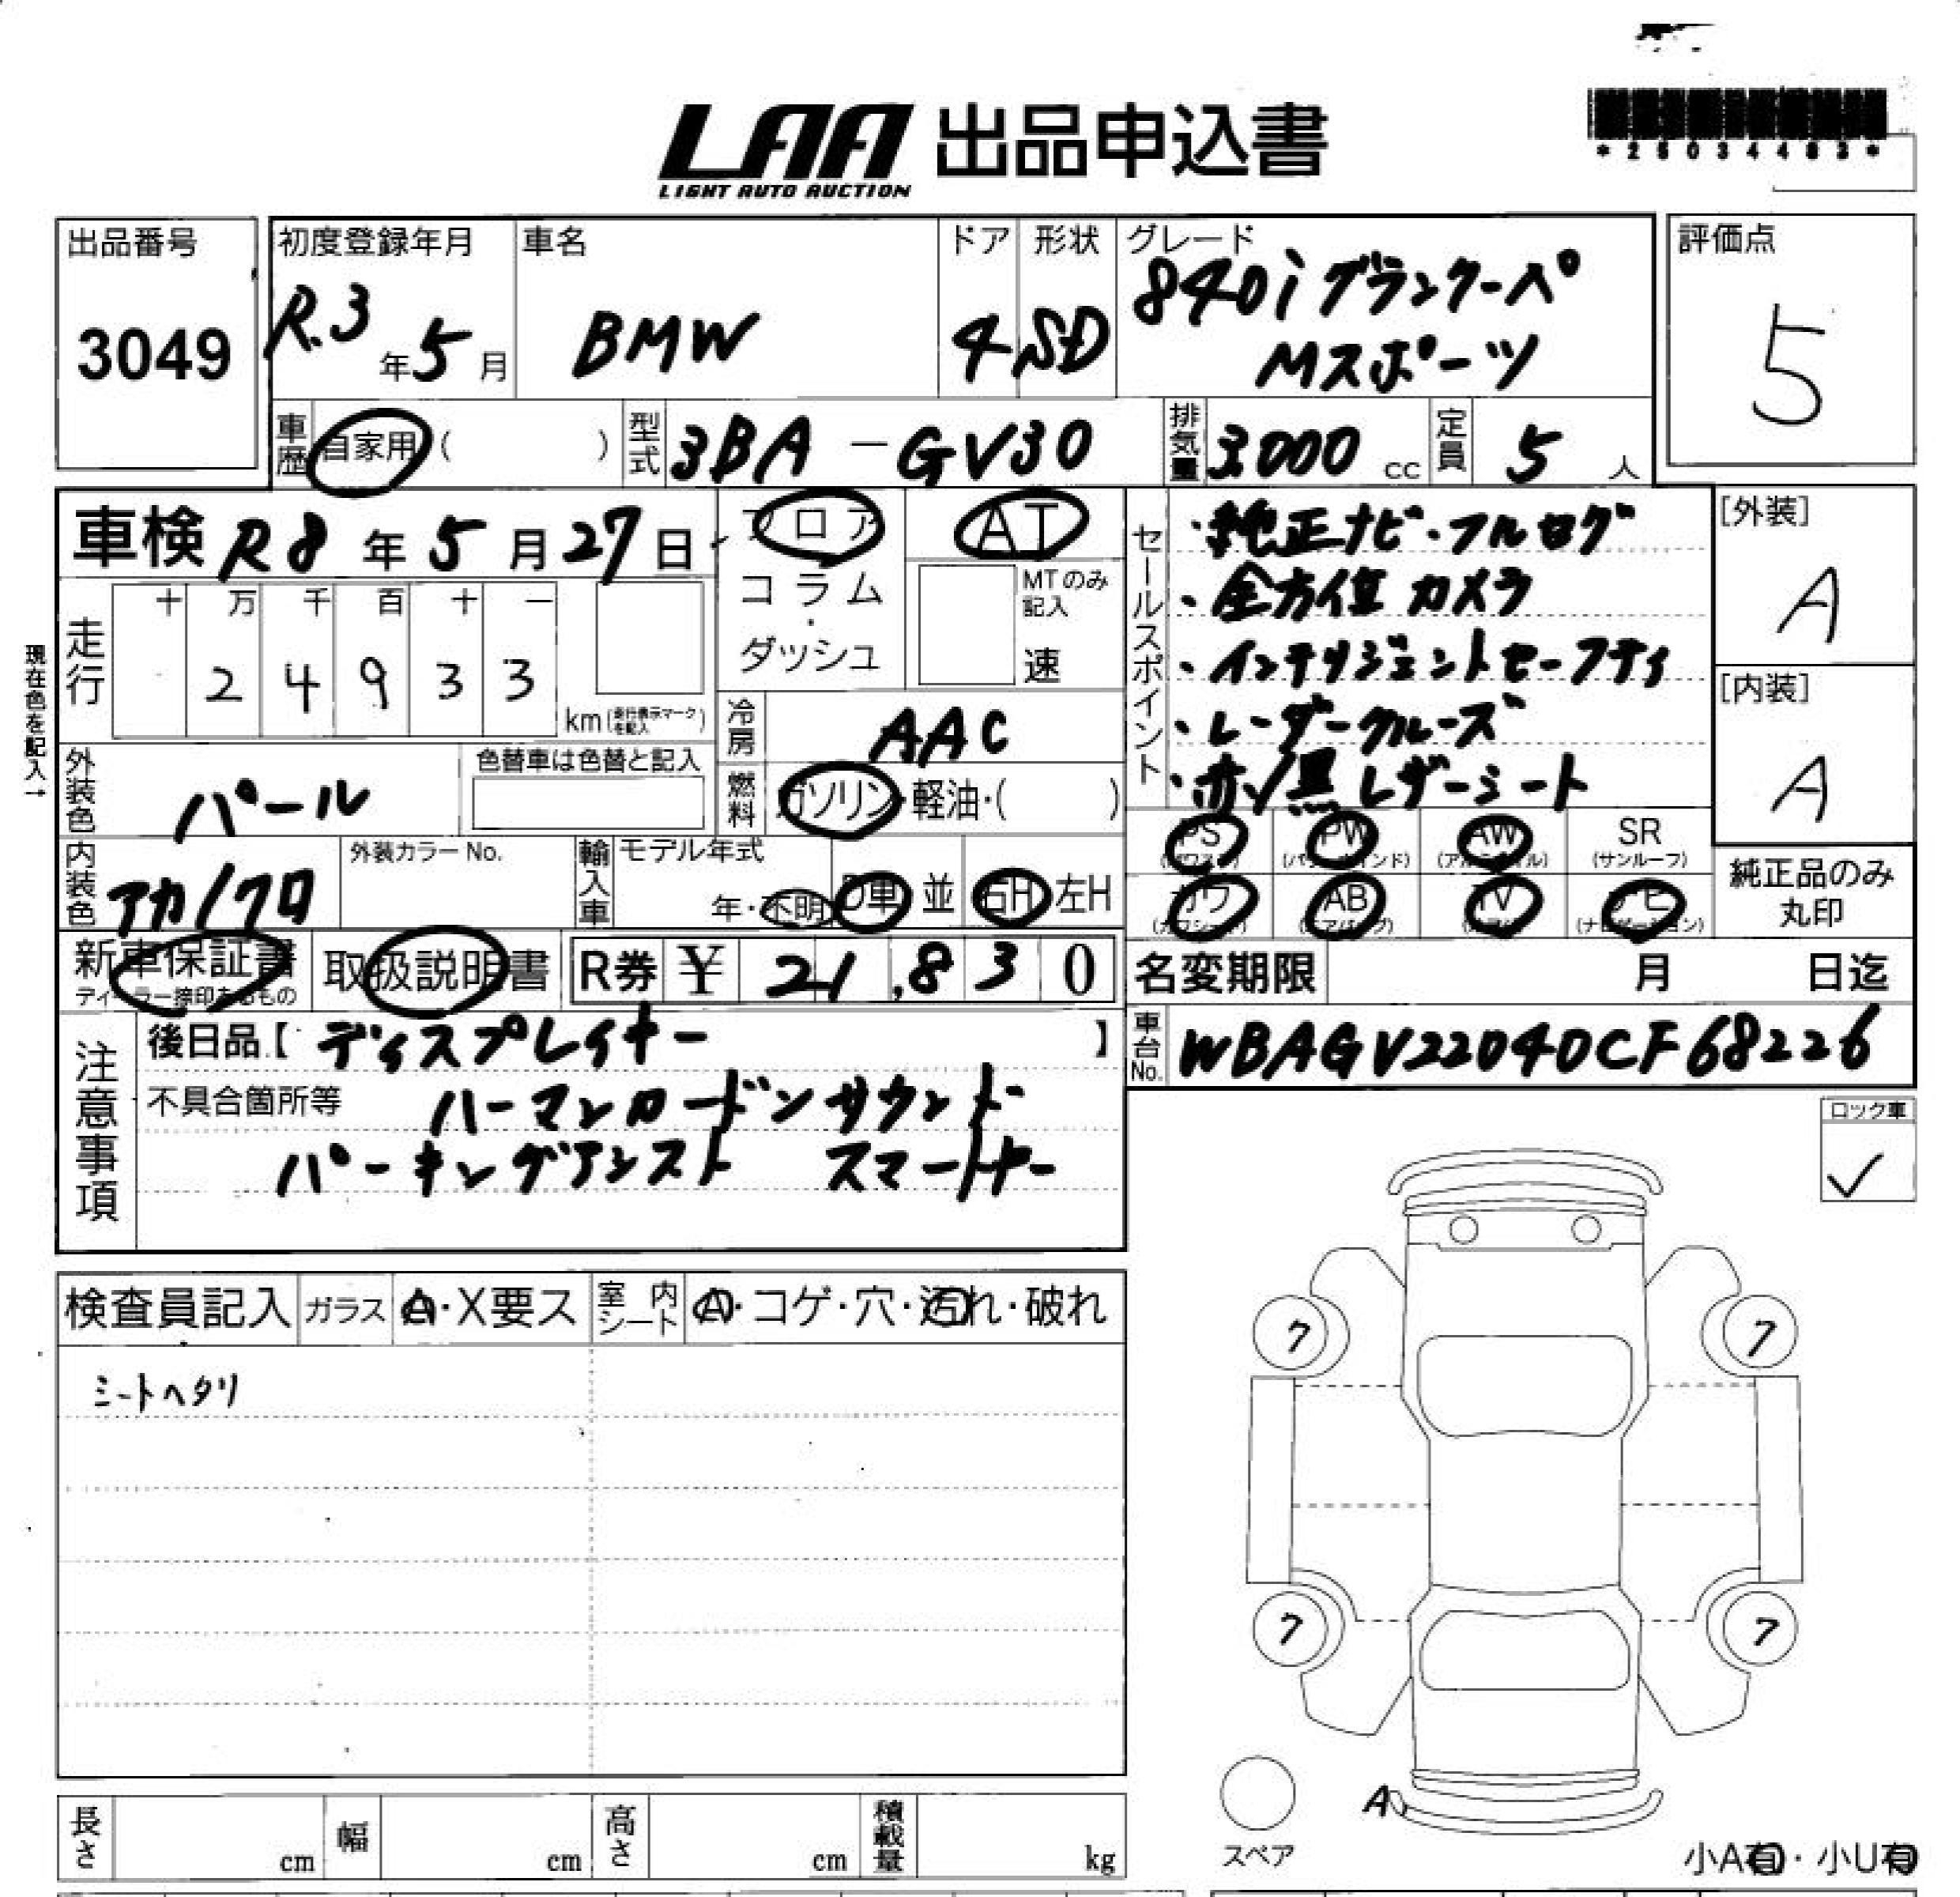 LAA 出品申込書
LIGHT AUTO AUCTION
出品番号
3049
初度登録年月
R.3年5月
車名
BMW
ドア
4
形状
SD
グレード
840iグランクーペ
Mスポーツ
評価点
5
車歴 自家用 ( )
型式 3BA-GV30
排気量 3000 cc
定員 5 人
車検 R8年5月27日
フロア
コラム・
ダッシュ
AT
MTのみ記入
速
現在色を記入→
走行 十 万 千 百 十 一
2 4 9 3 3 km
冷房 AAC
外装色 パール
色替車は色替と記入
燃料 ガソリン・軽油・( )
内装色 アカ/クロ
外装カラーNo.
輸入車 モデル年式
年・不明 D車 並 右H 左H
セールスポイント
・純正ナビ・フルセグ
・全方位カメラ
・インテリジェントセーフティ
・レーダークルーズ
・赤/黒レザーシート
[外装]
A
[内装]
A
PS PW AW SR
(サンルーフ)
カワ AB TV ナビ
純正品のみ
丸印
新車保証書
ディーラー捺印あるもの
取扱説明書
R券 ¥ 21,830
名変期限 月 日迄
車台No. WBAGV22040CF68226
注意事項
後日品【ディスプレイキー】
不具合箇所等 ハーマンカードンサウンド
パーキングアシスト スマートキー
ロック車
✓
検査員記入 ガラス A・X要ス 室内シート A・コゲ・穴・汚れ・破れ
シートヘタリ
7 7
7 7
A
スペア
小A有・小U有
長さ cm 幅 cm 高さ cm 積載量 kg